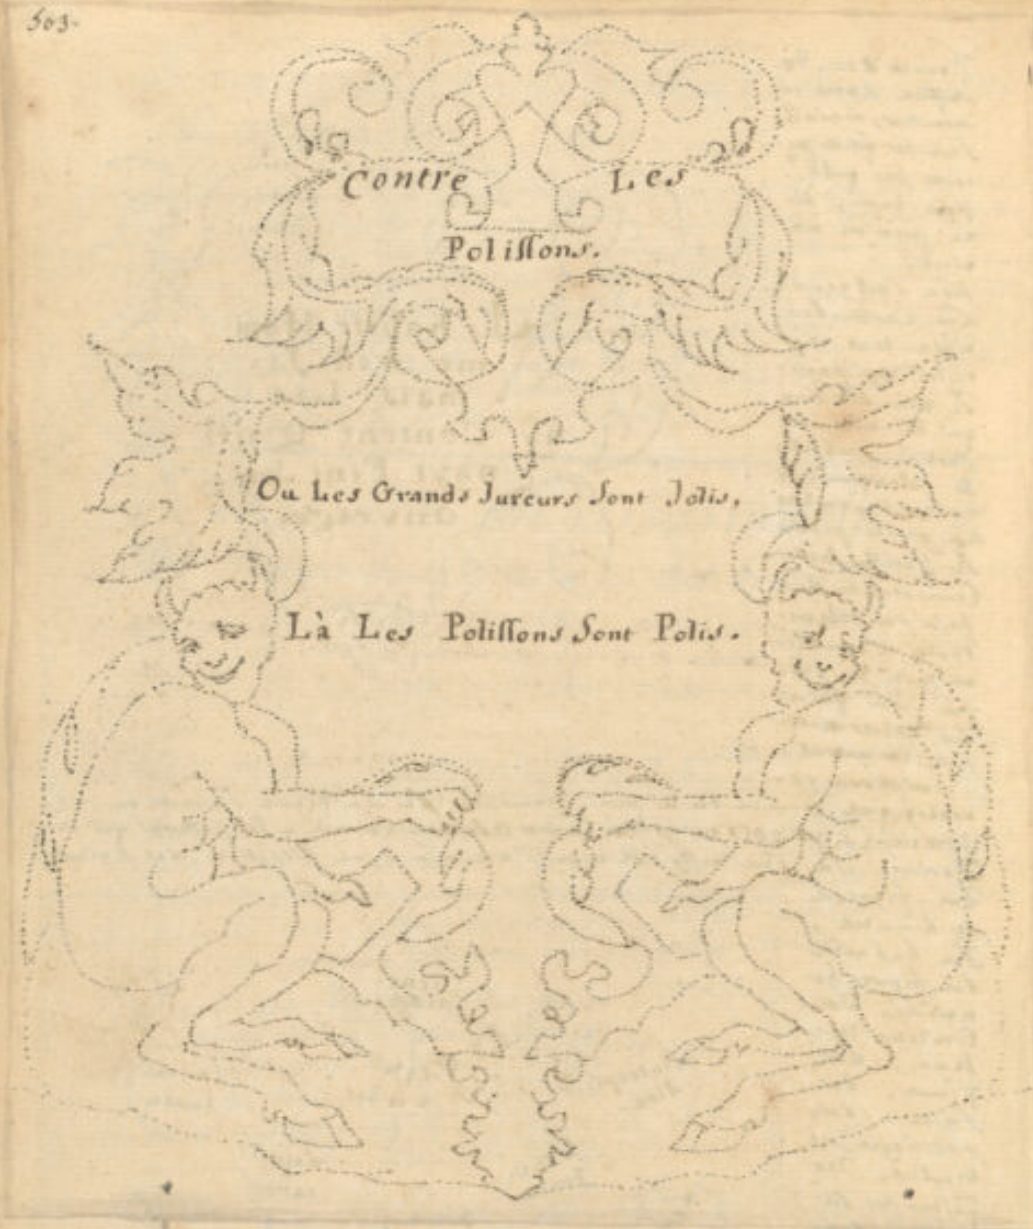 503.
Contre Les
Polissons.
Ou Les Grands Jureurs Sont Jolis,
Là Les Polissons Sont Polis.